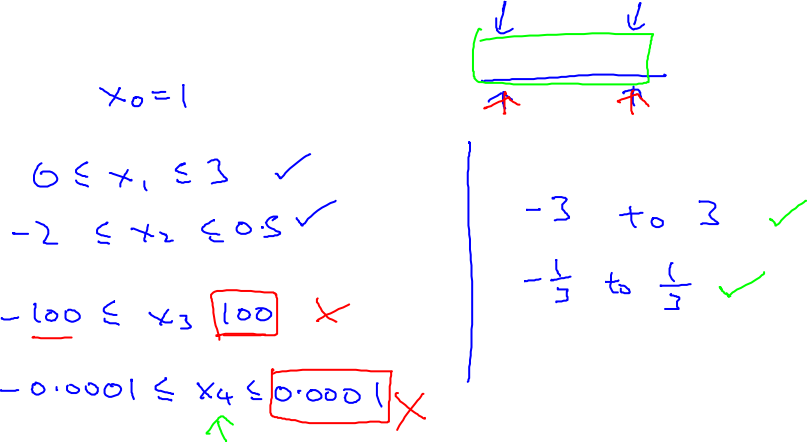 x₀ = 1
0 ≤ x₁ ≤ 3 ✓
-2 ≤ x₂ ≤ 0.5 ✓
-100 ≤ x₃ 100 ✗
-0.0001 ≤ x₄ ≤ 0.0001 ✗
-3 to 3 ✓
-1/3 to 1/3 ✓